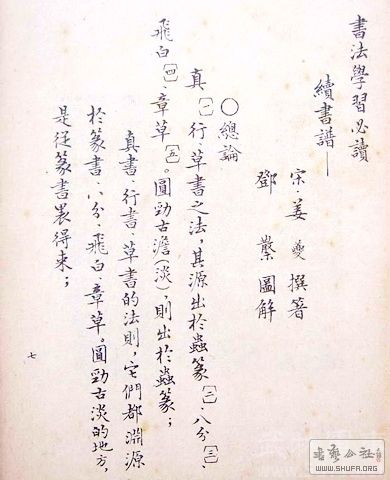 書法學習必讀
續書譜——
宋·姜夔撰著
鄧散圖解
〇總論
真〔一〕、行、草書之法，其源出於蟲篆〔二〕、八分〔三〕、
飛白〔四〕、章草〔五〕。圓勁古澹（淡），則出於蟲篆；
真書、行書、草書的法則，它們都淵源
於篆書、八分、飛白、章草。圓勁古淡的地方，
是從篆書裏得來；
七
書藝公社
WWW.SHUFA.ORG